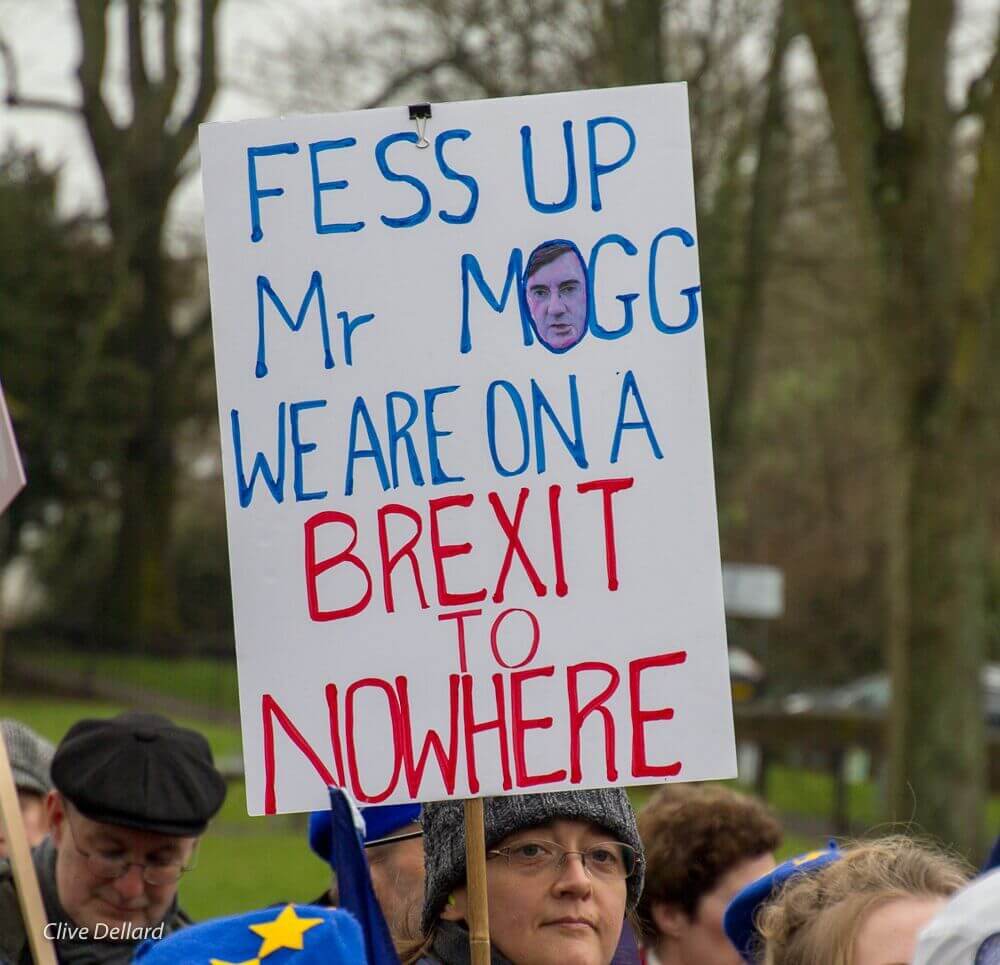 FESS UP
Mr MOGG
WE ARE ON A
BREXIT
TO
NOWHERE
Clive Dellard